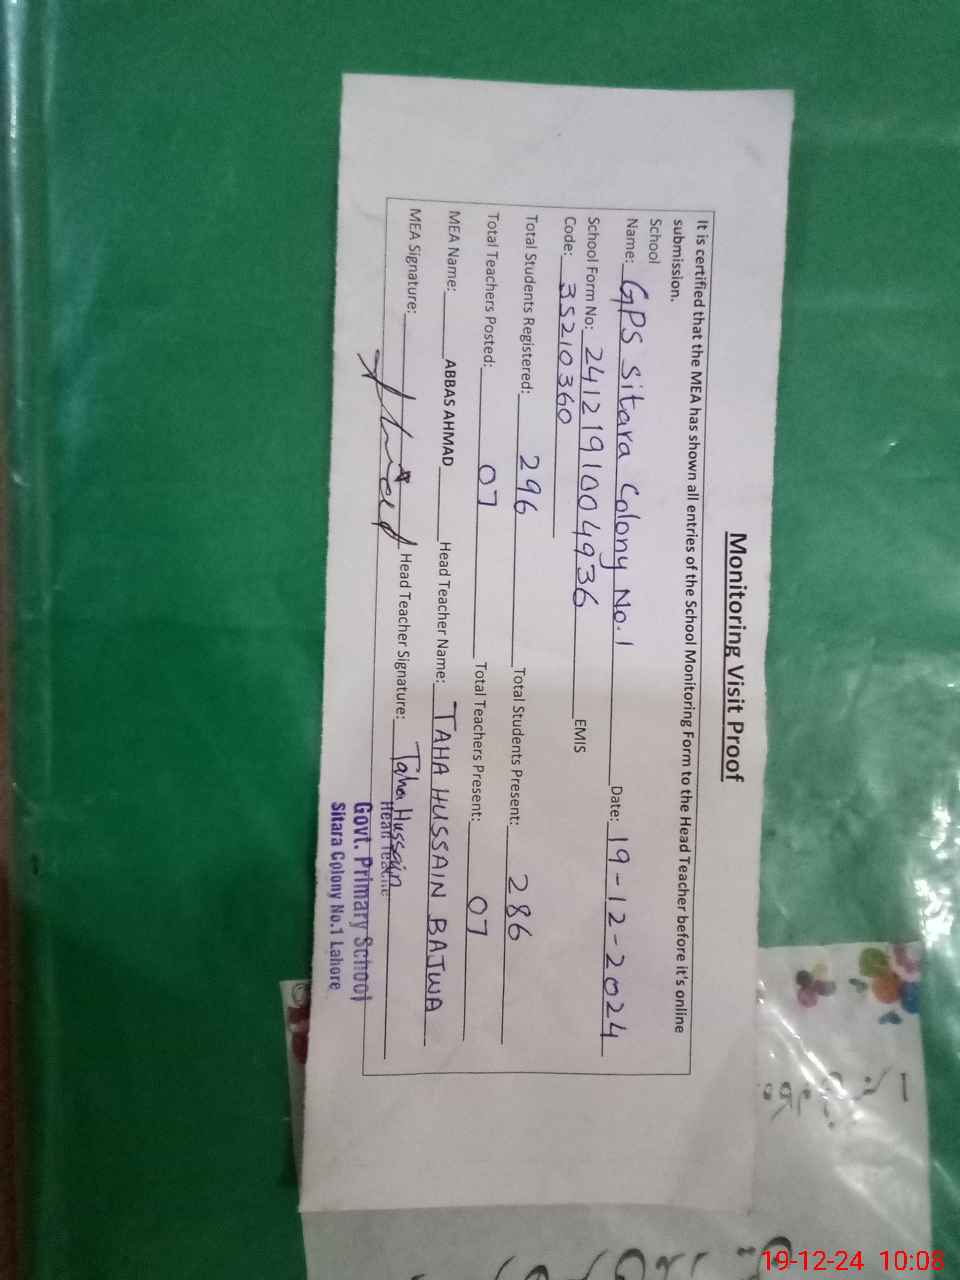 Monitoring Visit Proof
It is certified that the MEA has shown all entries of the School Monitoring Form to the Head Teacher before it's online
submission.
School
Name: GPS Sitara Colony No.1 Date: 19-12-2024
School Form No: 2412191004936 EMIS
Code: 35210360
Total Students Registered: 296 Total Students Present: 286
Total Teachers Posted: 07 Total Teachers Present: 07
MEA Name: ABBAS AHMAD Head Teacher Name: TAHA HUSSAIN BAJWA
MEA Signature: Head Teacher Signature: Taha Hussain
Govt. Primary School
Sitara Colony No.1 Lahore
19-12-24 10:08